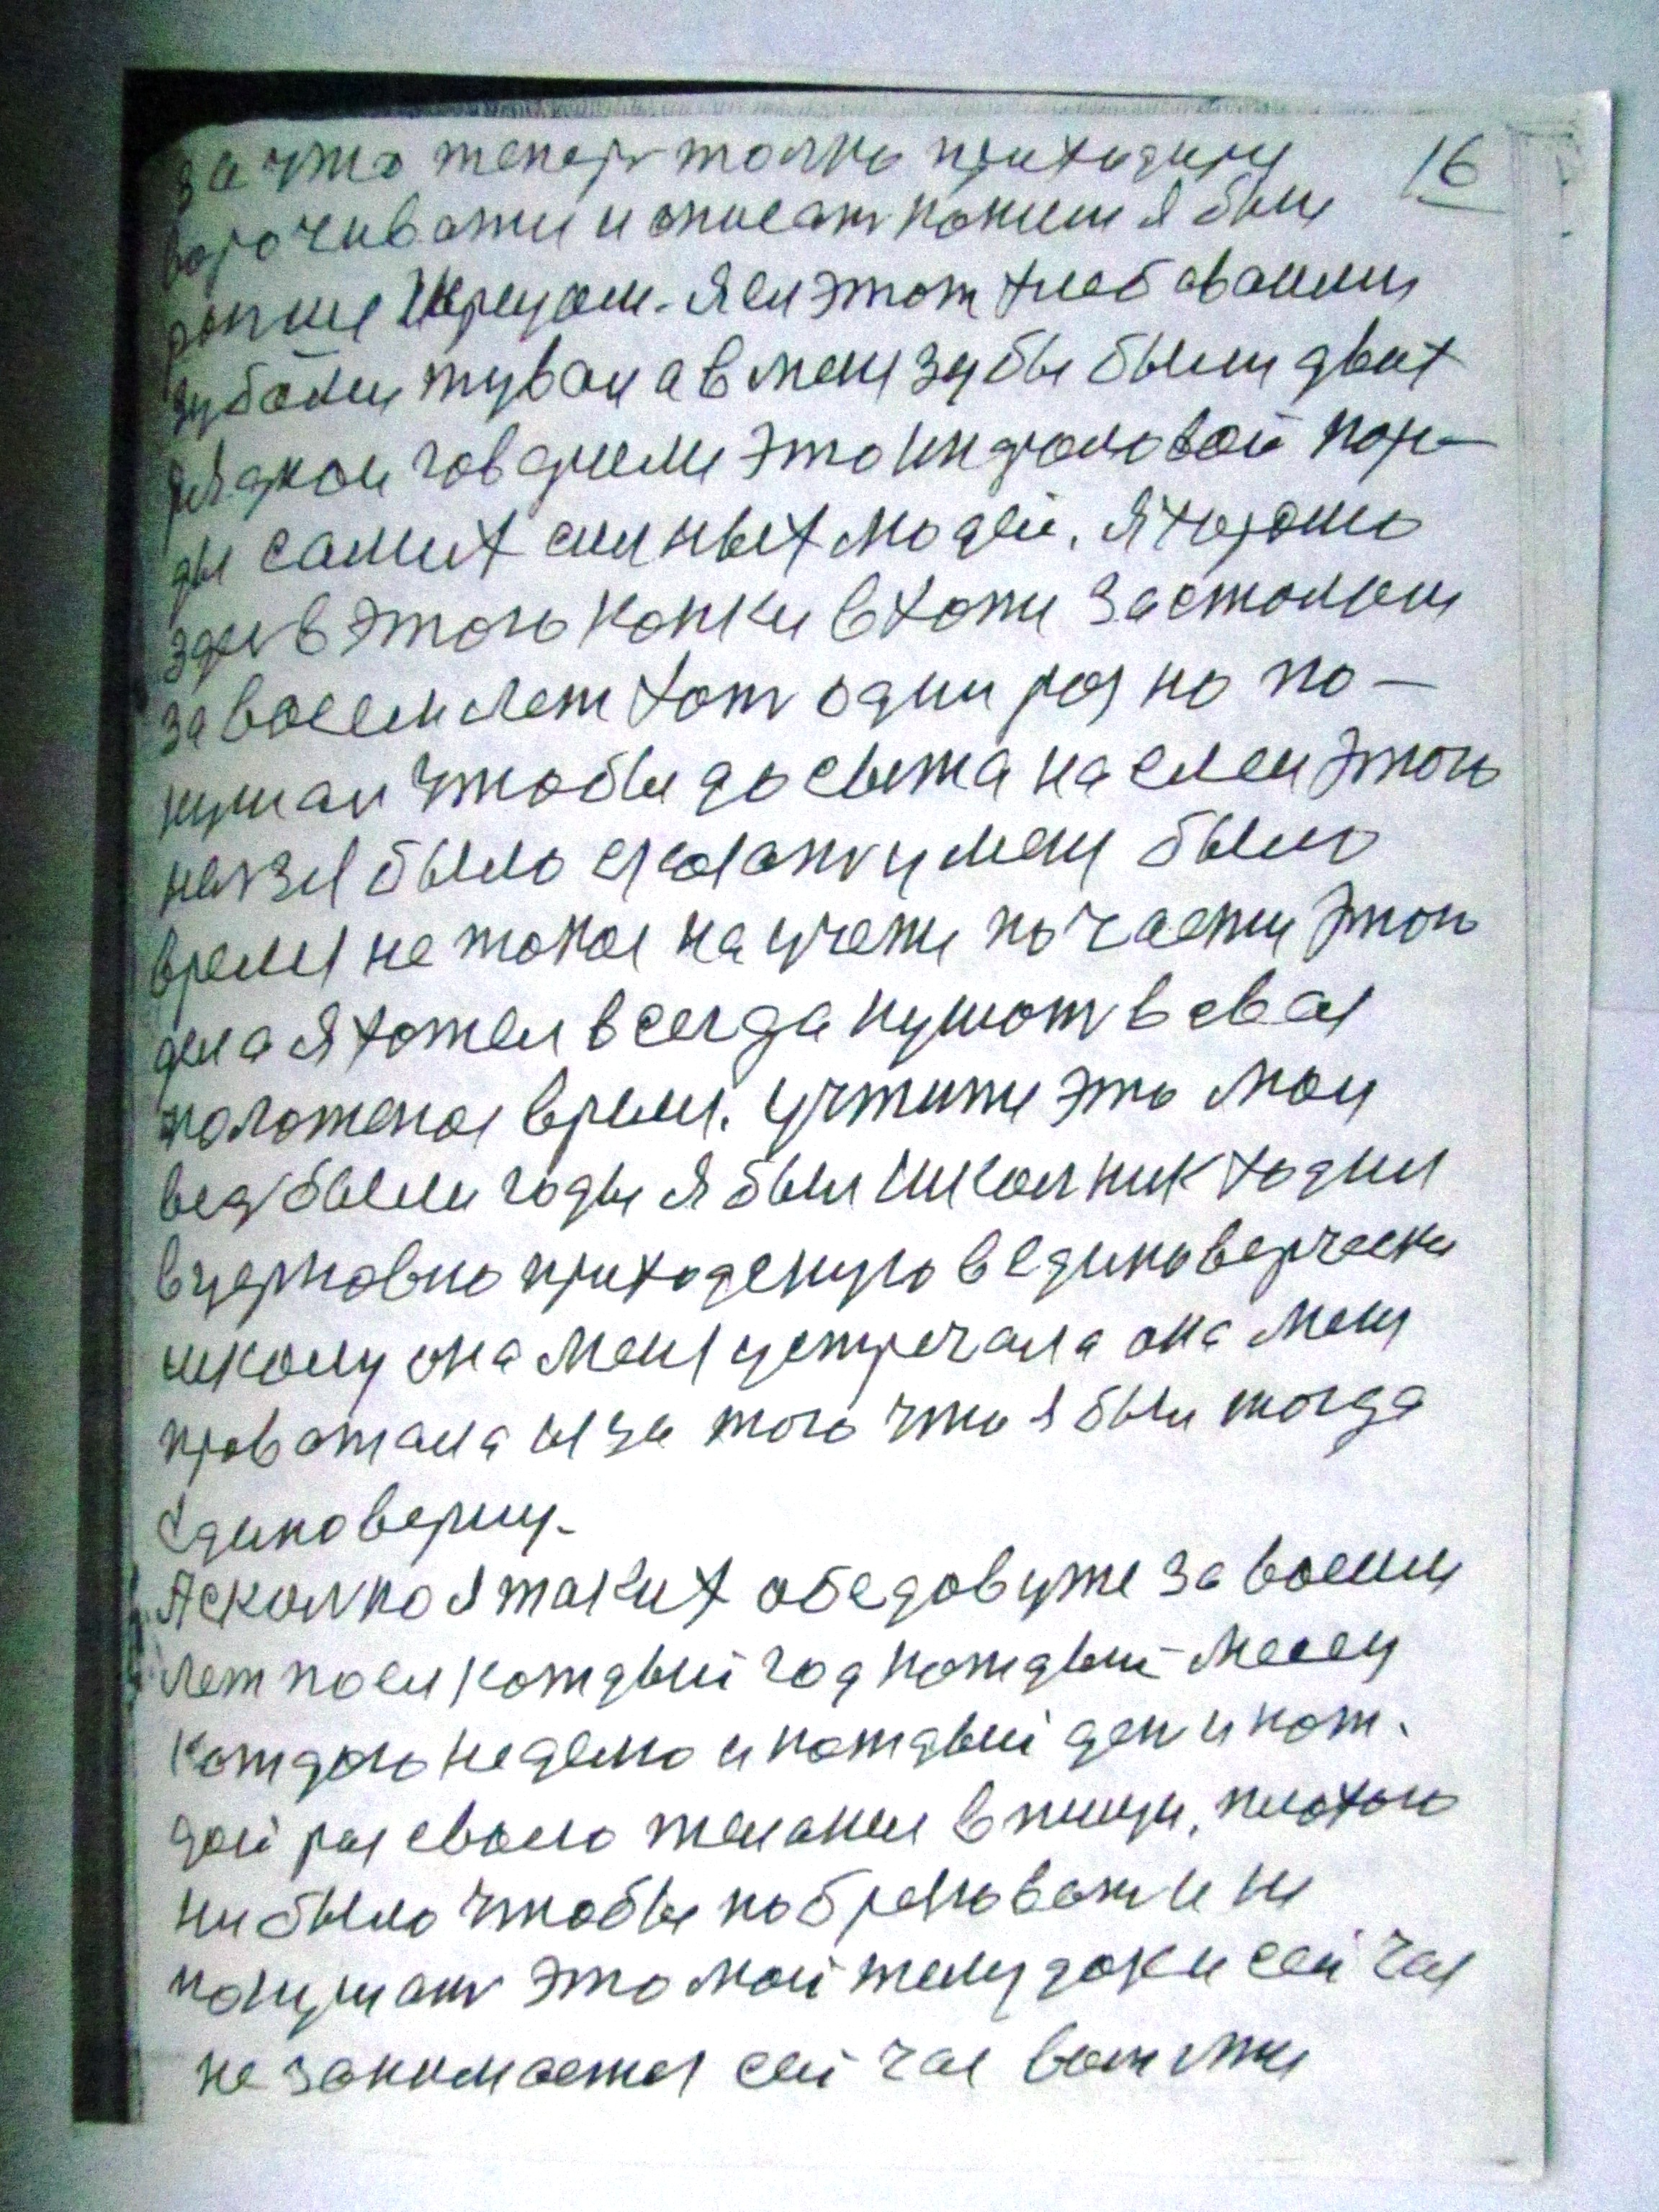 за что теперь толко приходица 16
ворочиватси и описат каким я был
раньше Жрецом. Я ел этот хлеб своими
зубами жувал а в мене зубы были двих
рядкои говарили это индроловой пора-
ды самих силных людей. Я хорошо
здесь в этого копки в хати за столом
за восем лет хоть один раз но по-
кушал чтобы досыта наелси этого
нелзя было сказать у мене было
время не токое на учети по части этого
дела я хотел всегда кушать в свая
положеная время. учтити это мои
ведь были годы я был школник ходил
в церковно приходскую в единоверчески
школу она меня устречала она меня
провожала из за того что я был тогда
единоверцу.
А сколко я таких обедов уже за восим
лет поел каждый год каждый месец
каждою неделю и каждый ден и каж.
дой раз своею желания в пищи, плохого
ни было чтобы побрезговать и ни
покушать это мой желудок и сей час
не занимаетси сей час вот или